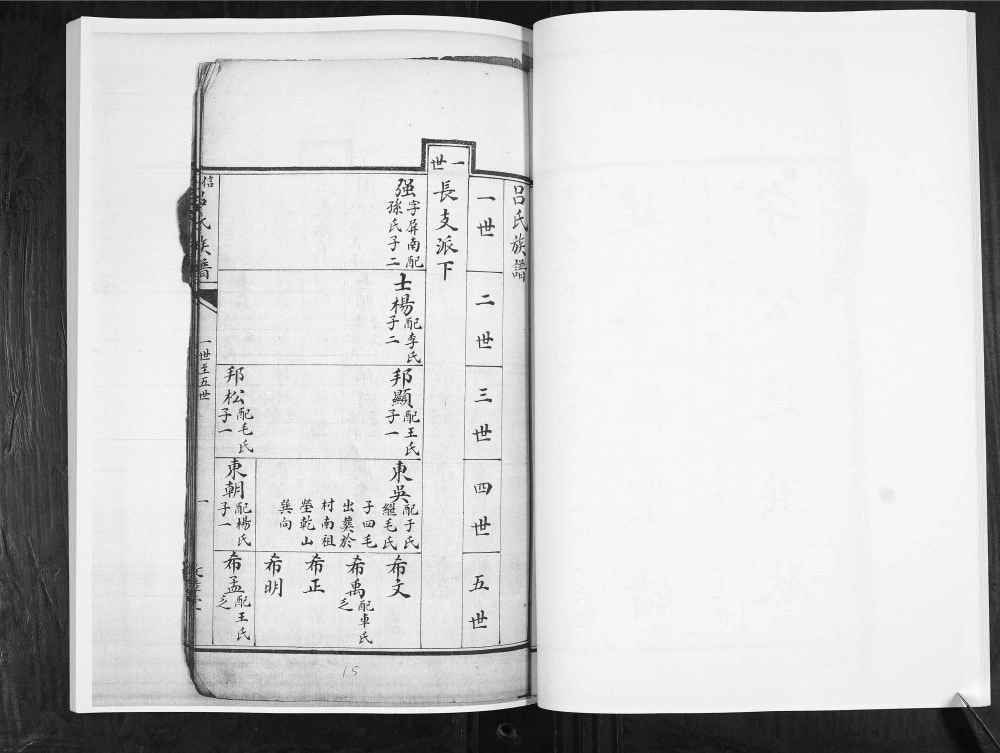 呂氏族譜
一世
二世
三世
四世
五世
一世
長支派下
强
字屏南配
孫氏子二
士楊
配李氏
子二
邦顯
配王氏
子一
邦松
配毛氏
子一
東吳
配于氏
繼毛氏
子四毛
出葬於
村南祖
塋乾山
巽向
東朝
配楊氏
子一
希文
希禹
配車氏
乏
希正
希明
希孟
配王氏
乏
呂氏族譜
一世至五世
一
15